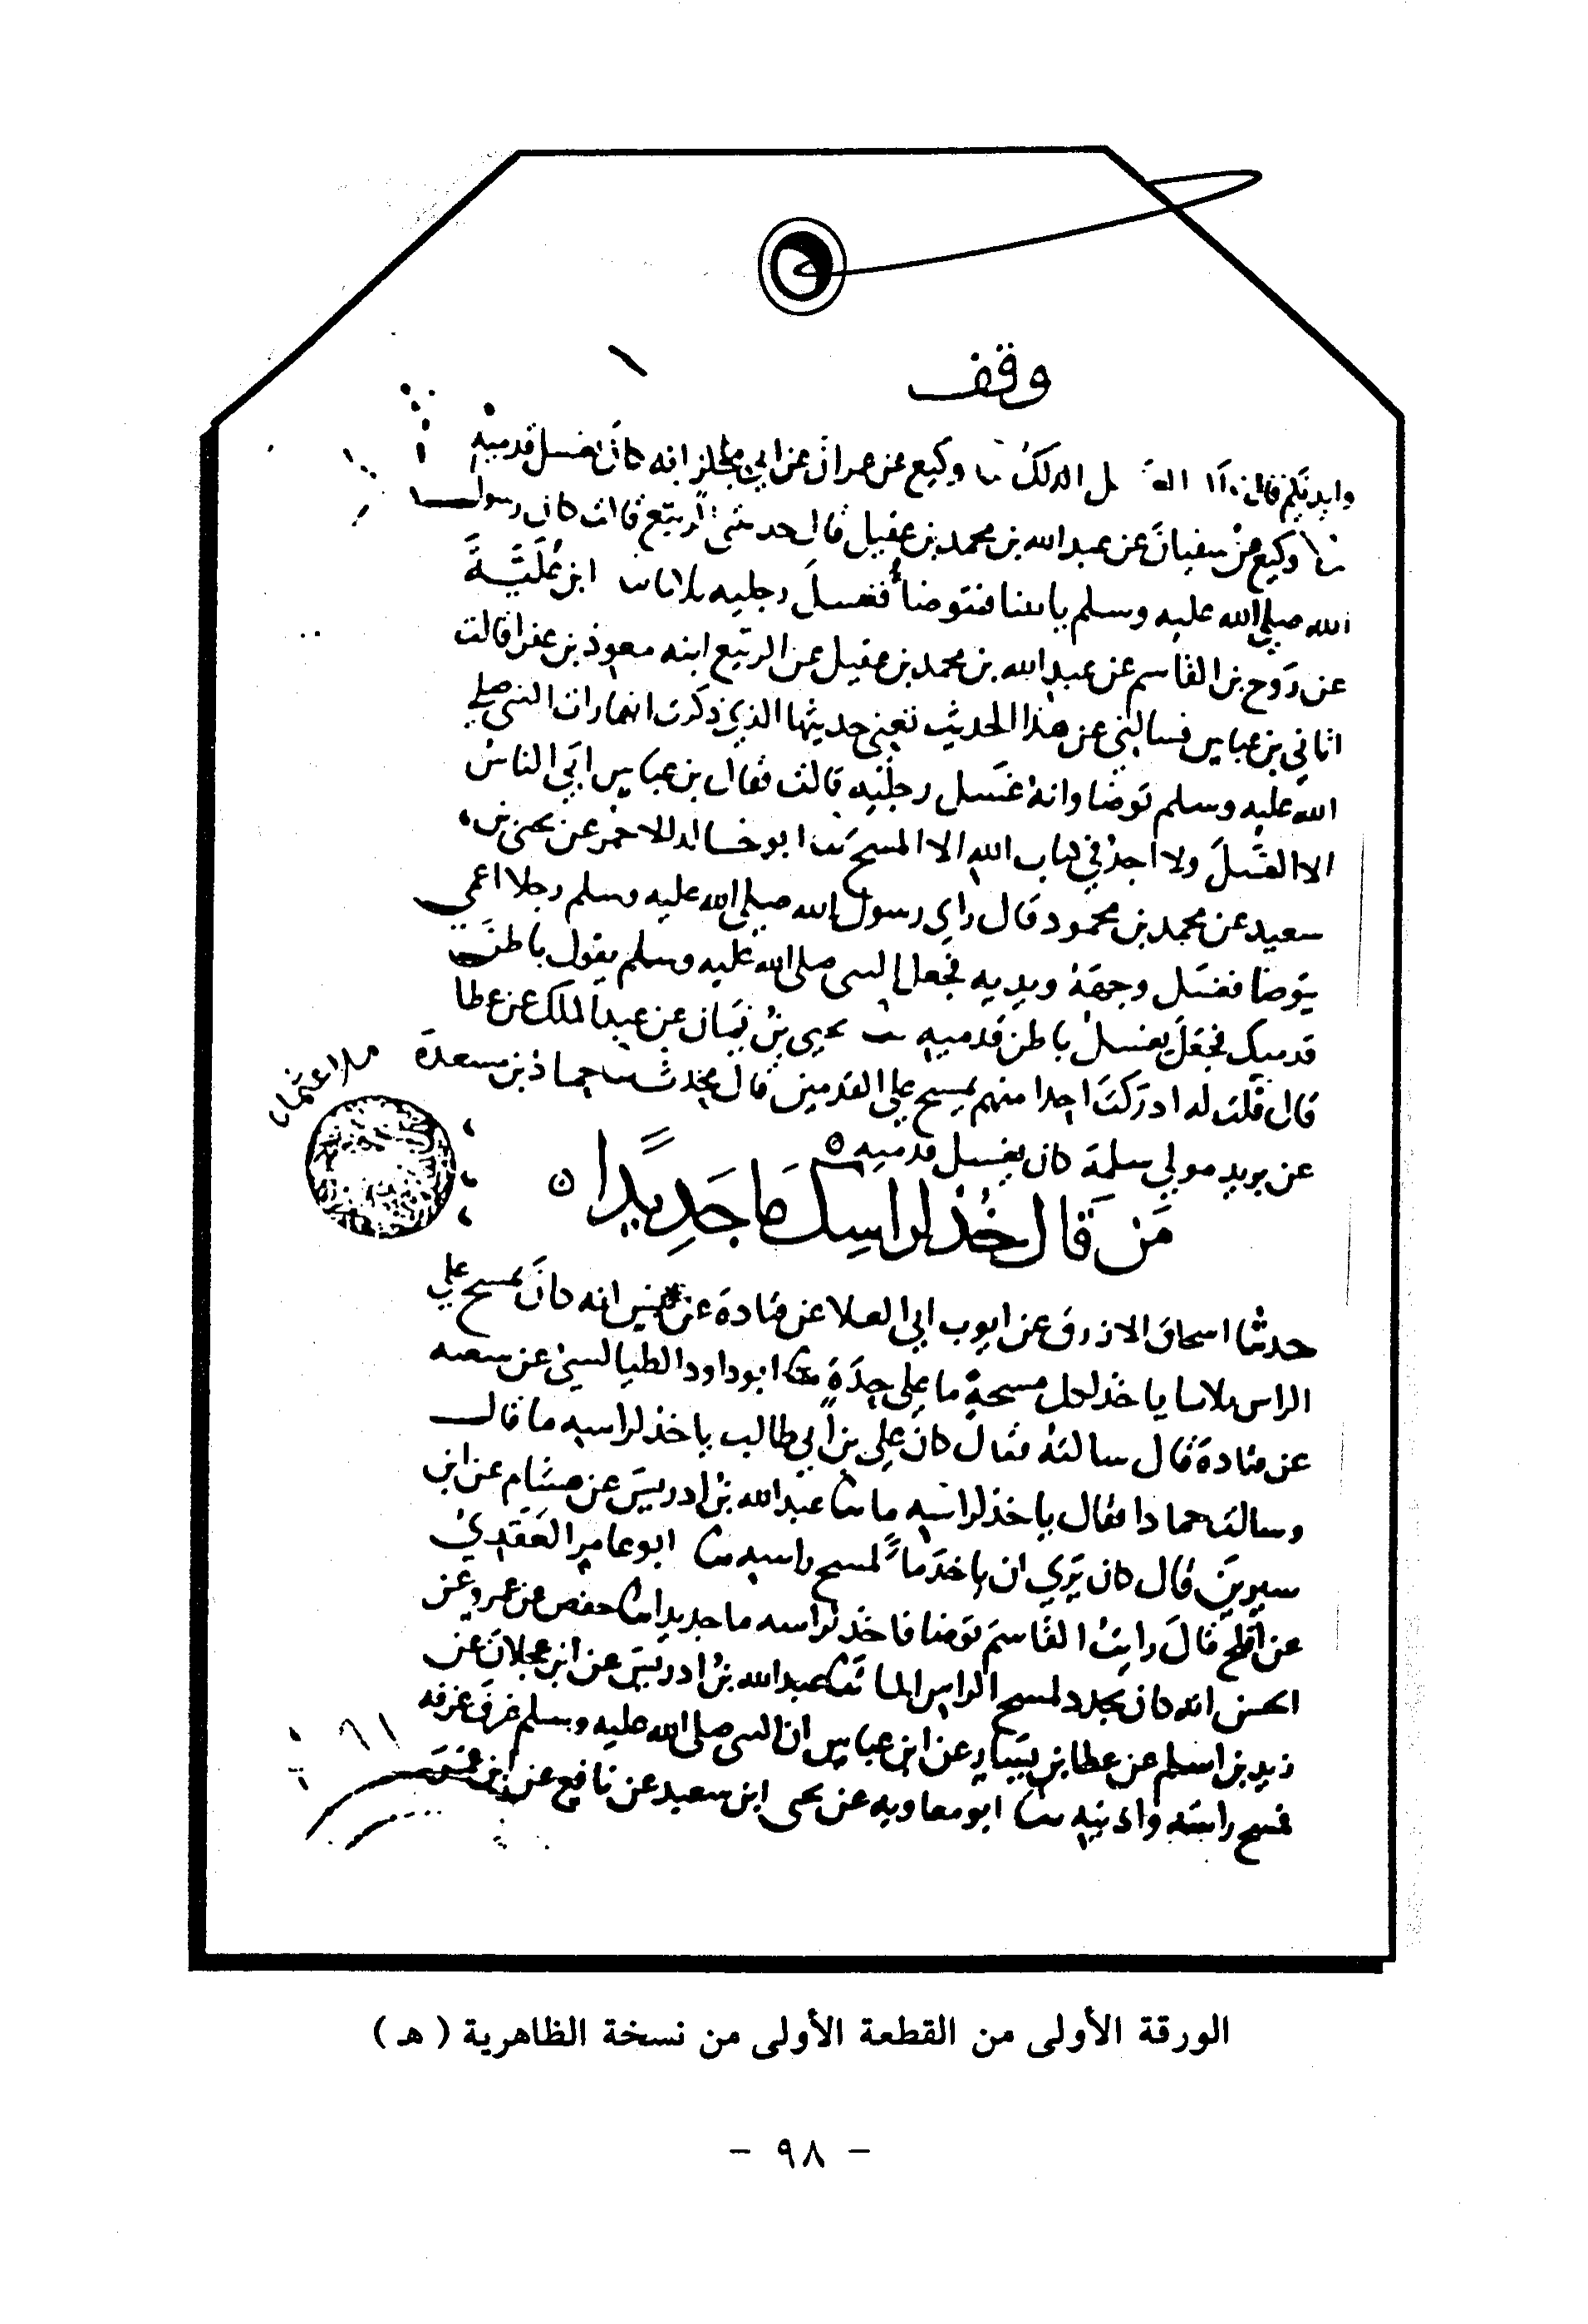 وقف
١
وايديكم قال الدلك ثنا وكيع عن عمران عن ابي مجلز انه كان يغسل قدميه
ثنا وكيع عن سفيان عن عبد الله بن محمد بن عقيل قال حدثتني الربيع قالت كان رسول
الله صلى الله عليه وسلم ياتينا فتوضا فغسل رجليه ثلاثا ثنا ابن علية
عن روح بن القاسم عن عبد الله بن محمد بن عقيل عن الربيع ابنه معوذ بن عفرا قالت
اتاني بن عباس فسالني عن هذا الحديث تعني حديثها الذي ذكرت انها رات النبي صلى
الله عليه وسلم توضا وانه غسل رجليه قالت فقال بن عباس ابي الناس
الا الغسل ولا اجد في كتاب الله الا المسح ثنا ابو خالد الاحمر عن يحيى بن
سعيد عن محمد بن محمود قال راي رسول الله صلى الله عليه وسلم رجلا اعمي
يتوضا فغسل وجهه ويديه فجعل النبي صلى الله عليه وسلم يقول باطن
قدميك فجعل يغسل باطن قدميه ثنا يحيى بن يمان عن عبد الملك عن عطا
قال قلت له ادركت احدا منهم يمسح على القدمين قال محدث ثنا حماد بن مسعدة
عن يزيد مولي سلمة كان يغسل قدميه
من قال خذ لراسك ما جديدا
حدثنا اسحاق الازرق عن ايوب ابي العلا عن قتادة عن انس انه كان يمسح على
الراس ثلاثا ياخذ لكل مسحة ما على حدة ثنا ابو داود الطيالسي عن شعبه
عن قتادة قال سالته فقال كان علي بن ابي طالب ياخذ لراسه ما قال
وسالت حمادا فقال ياخذ لراسه ما ثنا عبد الله بن ادريس عن هشام عن ابن
سيرين قال كان يري ان ياخذ ما لمسح راسه ثنا ابو عامر العقدي
عن افلح قال رايت القاسم توضا فاخذ لراسه ما جديدا ثنا حفص عن عمرو عن
الحسن انه كان يجدد لمسح الراس الما ثنا عبد الله بن ادريس عن ابن عجلان عن
زيد بن اسلم عن عطا بن يسار عن ابن عباس ان النبي صلى الله عليه وسلم غرف غرفه
فمسح راسه واذنيه ثنا ابو معاويه عن يحي ابن سعيد عن نافع عن ابن عمر
الورقة الأولى من القطعة الأولى من نسخة الظاهرية ( هـ )
- ٩٨ -